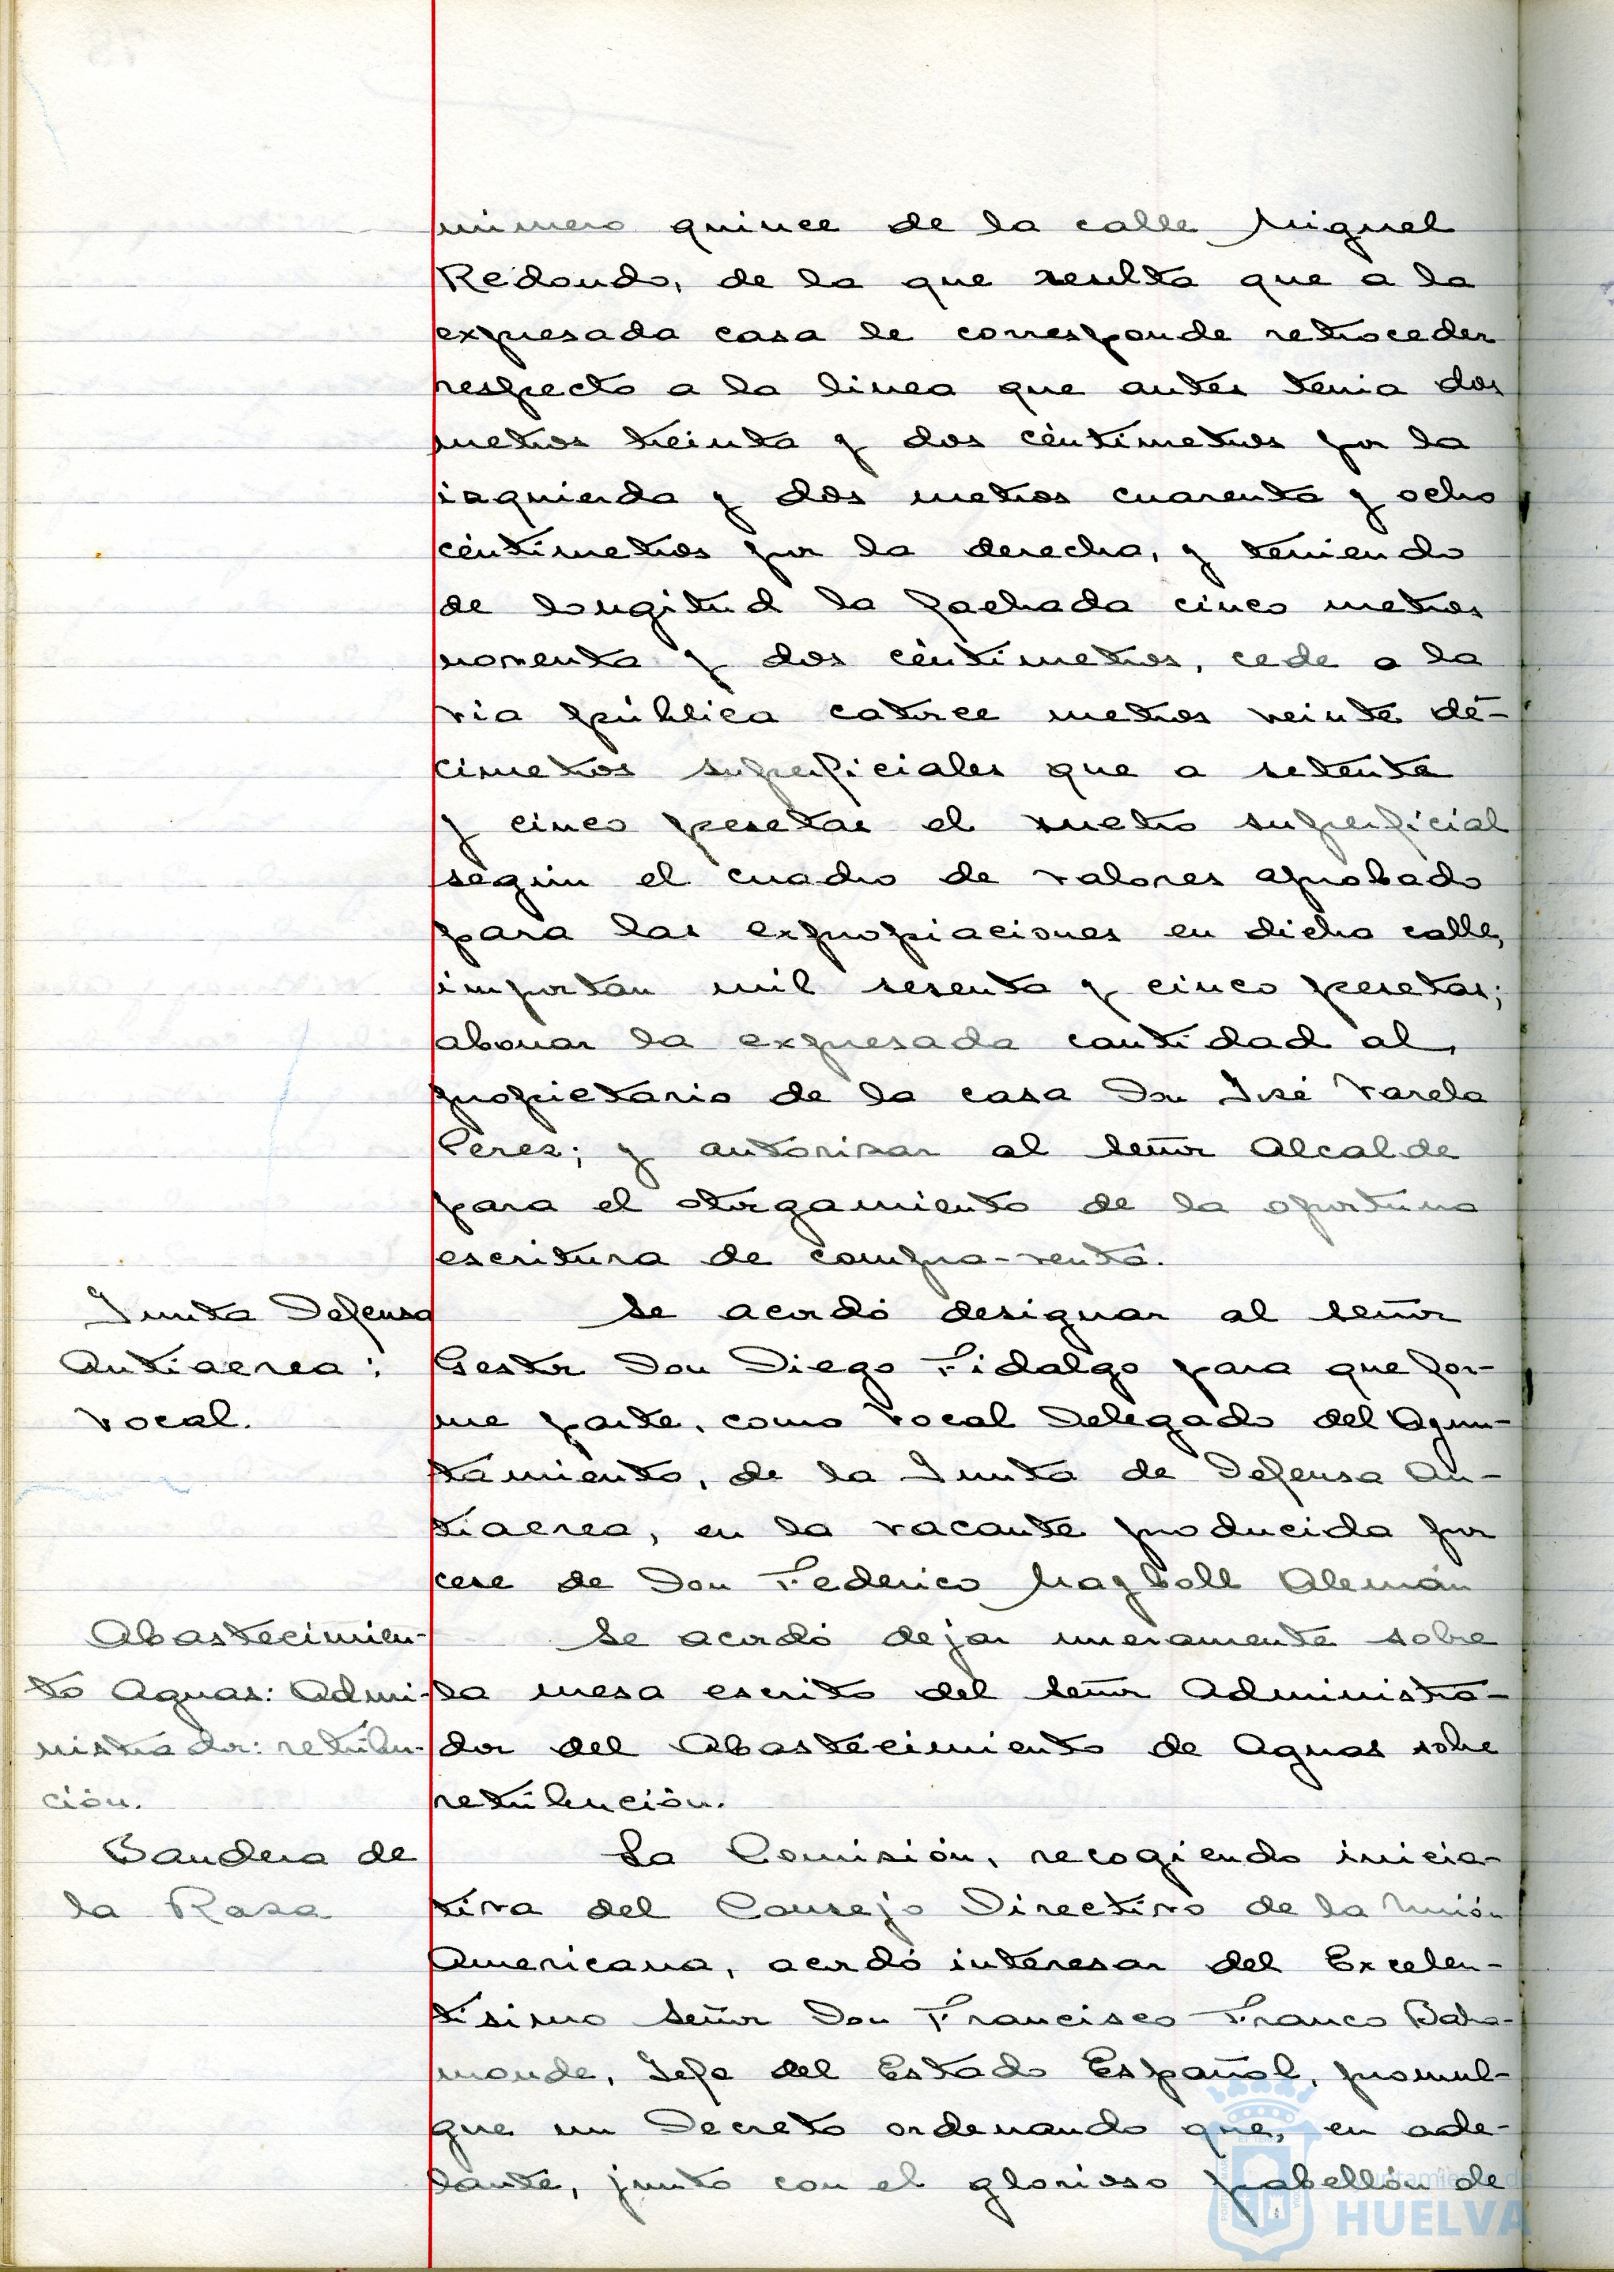 número quince de la calle Miguel
Redondo, de la que resulta que a la
expresada casa le corresponde retroceder
respecto a la linea que antes tenia dos
metros treinta y dos céntimetros por la
izquierda y dos metros cuarenta y ocho
céntimetros por la derecha, y teniendo
de longitud la fachada cinco metros
noventa y dos céntimetros, cede a la
via pública catorce metros veinte dé-
cimetros superficiales que a setenta
y cinco pesetas el metro superficial
según el cuadro de valores aprobado
para las expropiaciones en dicha calle,
importan mil sesenta y cinco pesetas;
abonar la expresada cantidad al
propietario de la casa Don José Varela
Perez; y autorizar al Señor Alcalde
para el otorgamiento de la oportuna
escritura de compra-venta.
Junta Defensa
Antiaerea:
Vocal.
Se acordó designar al Señor
Gestor Don Diego Fidalgo para que for-
me parte, como Vocal Delegado del Ayun-
tamiento, de la Junta de Defensa An-
tiaerea, en la vacante producida por
cese de Don Federico Mayboll Alemán
Abastecimien-
to Aguas: Admi-
nistrador: retribu-
ción.
Se acordó dejar nueramente sobre
la mesa escrito del Señor Administra-
dor del Abastecimiento de Aguas sobre
retribución.
Bandera de
la Raza
La Comisión, recogiendo inicia-
tiva del Consejo Directivo de la Unión
Americana, acordó interesar del Excelen-
tisimo Señor Don Francisco Franco Baha-
monde, Jefe del Estado Español, promul-
gue un Decreto ordenando que, en ade-
lante, junto con el glorioso pabellón de
Ayuntamiento de
HUELVA